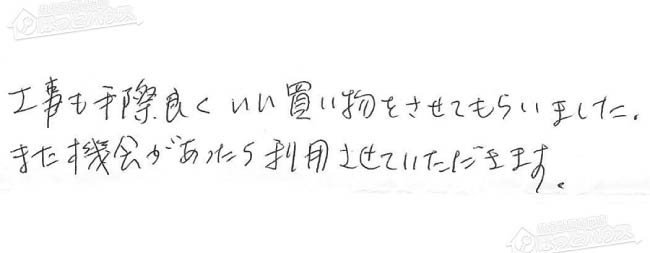 工事も手際良くいい買い物をさせてもらいました.
また機会があったら利用させていただきます。